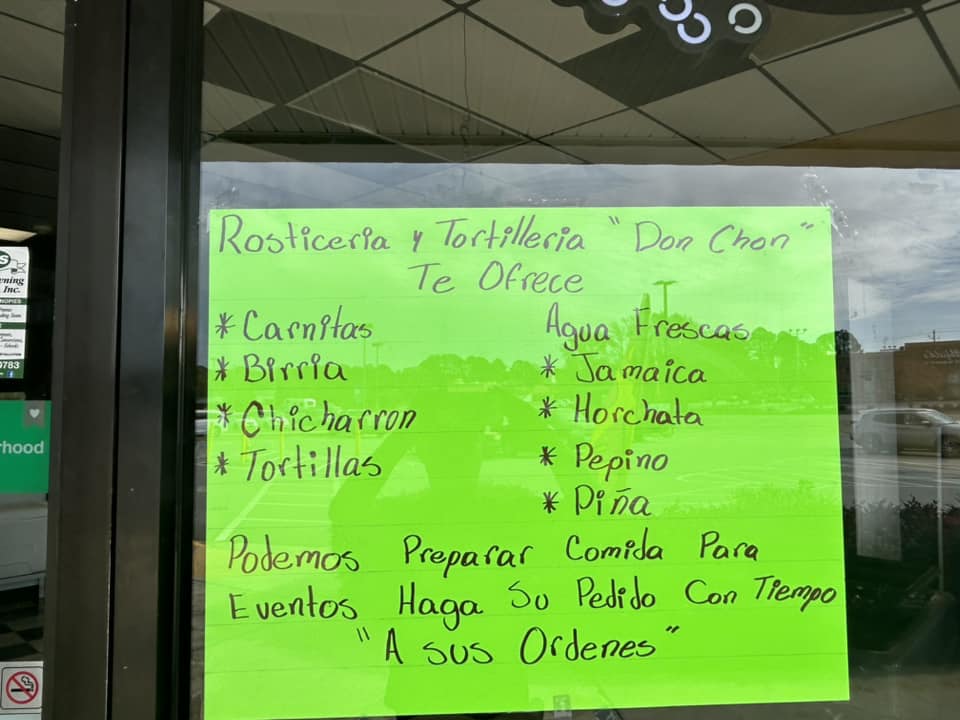 Rosticeria y Tortilleria "Don Chon"
Te Ofrece
* Carnitas
* Birria
* Chicharron
* Tortillas
Agua Frescas
* Jamaica
* Horchata
* Pepino
* Piña
Podemos Preparar Comida Para
Eventos Haga Su Pedido Con Tiempo
"A sus Ordenes"
Inc.
9783
rhood